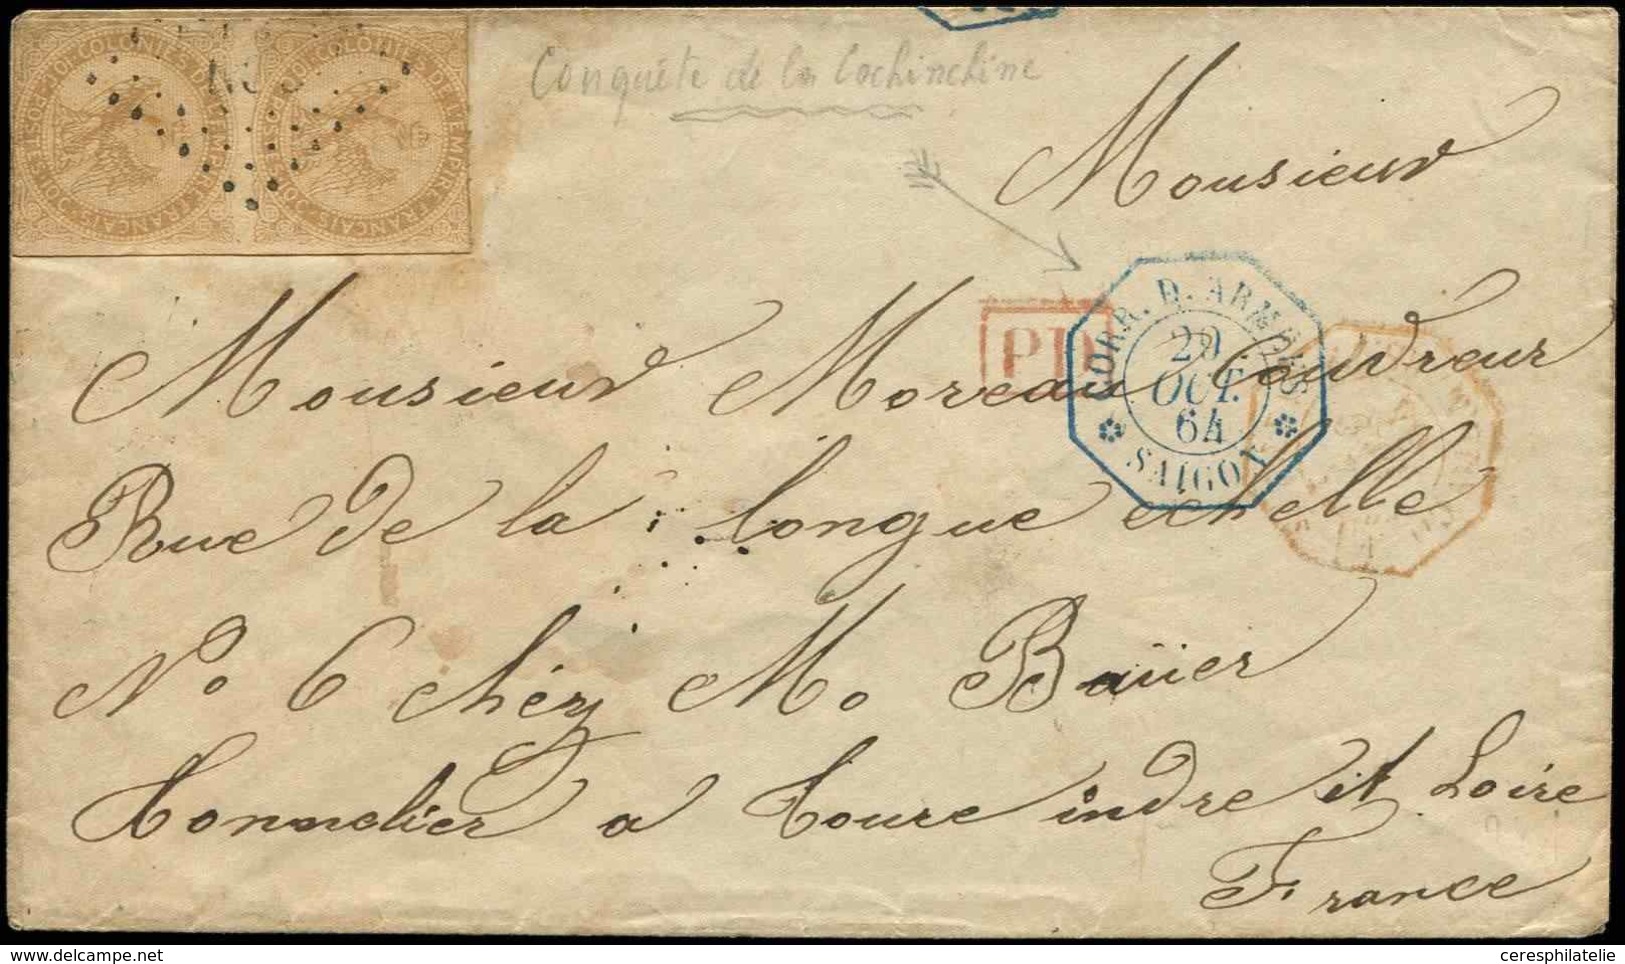 COLONIES DE L'EMPIRE FRANÇAIS
COLONIES DE L'EMPIRE FRANÇAIS
Conquête de la Cochinchine
Monsieur
PD
CORR. D. ARMÉES
29
OCT.
64
SAIGON
Monsieur Moreau Couvreur
Rue de la longue echelle
No 6 chéz Mo Baüer
Tonnelier a Tours indre et Loire
France
ceresphilatelie